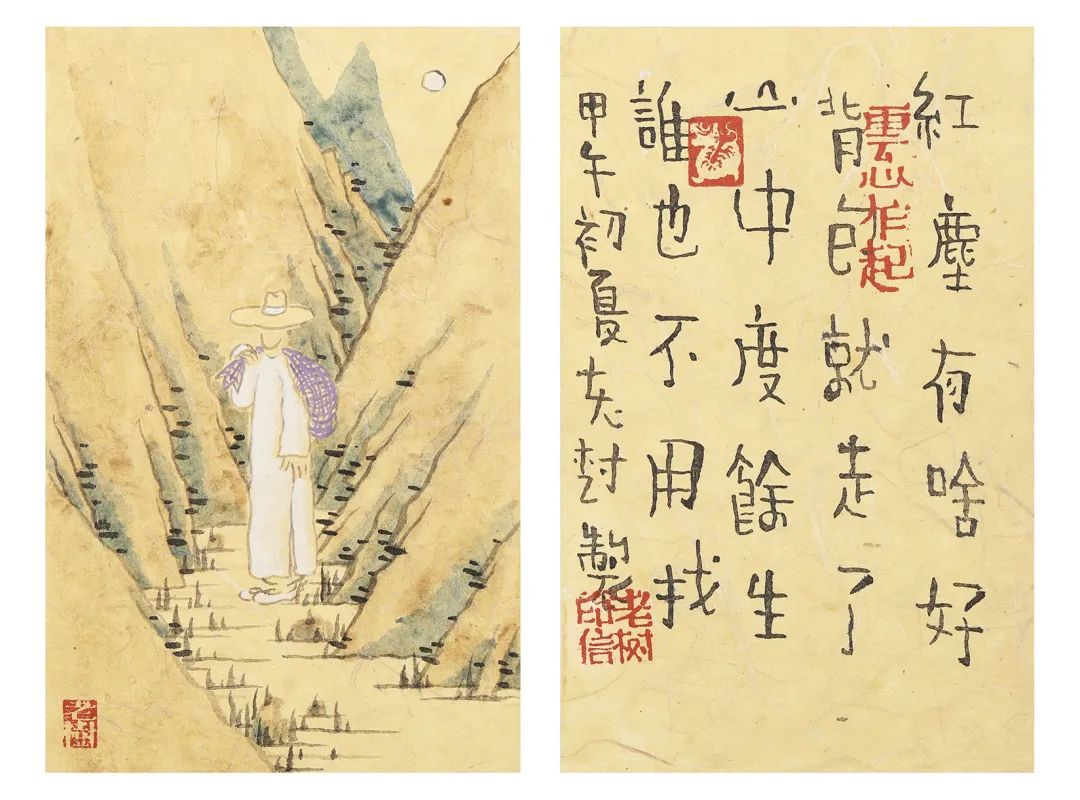 紅塵有啥好
背包就走了
山中度餘生
誰也不用找
甲午初夏老樹製
老树印信
老树